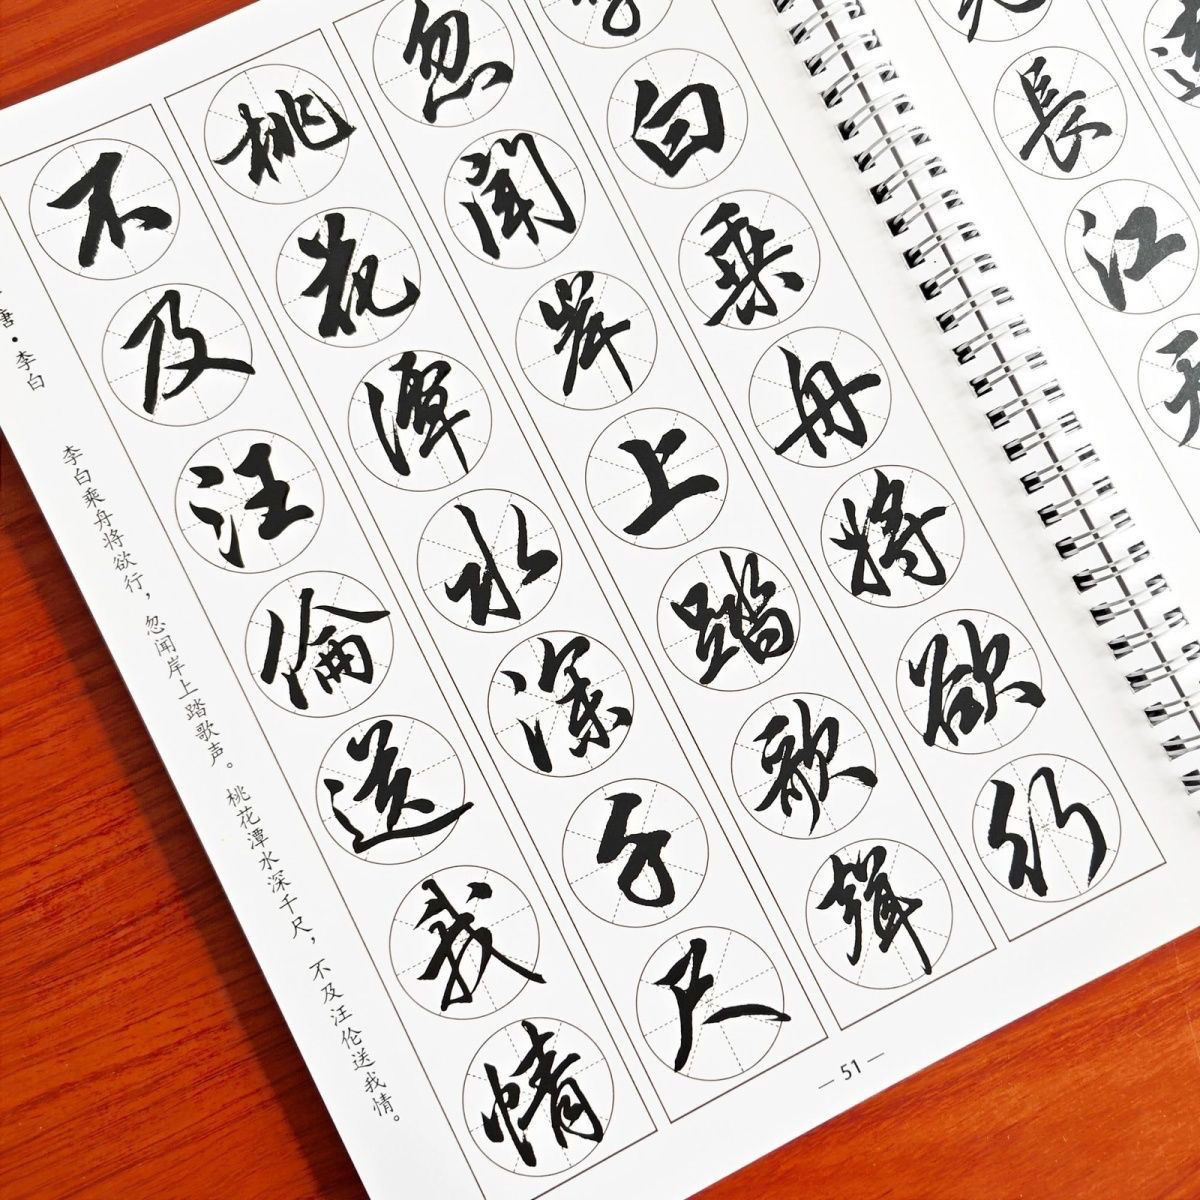 長江天
李白乘舟將欲行
忽聞岸上踏歌聲
桃花潭水深千尺
不及汪倫送我情
唐·李白
李白乘舟将欲行，忽闻岸上踏歌声。桃花潭水深千尺，不及汪伦送我情。
— 51 —